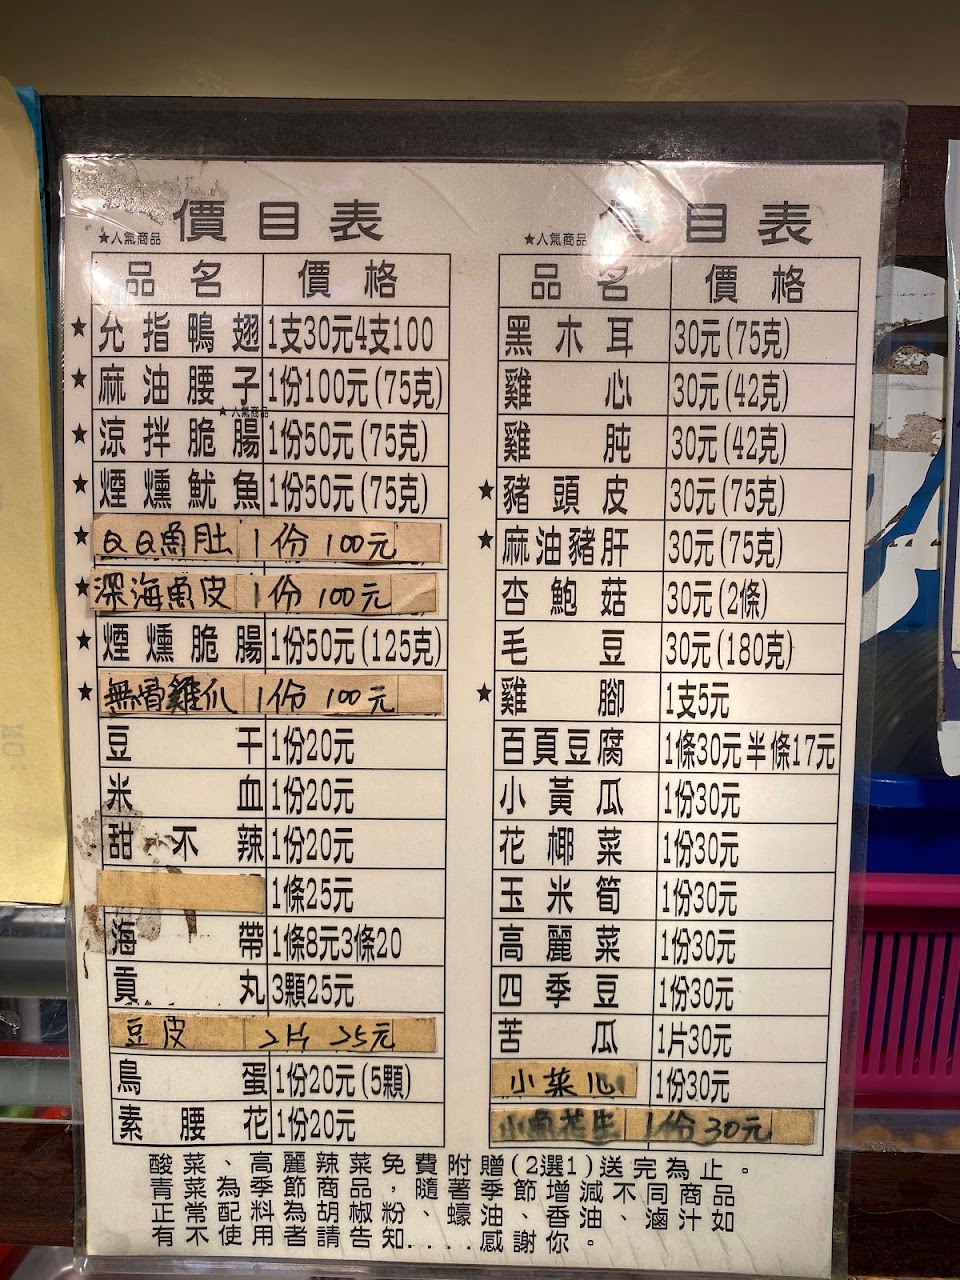 價目表
★人氣商品
品名 價格
★ 允指鴨翅 1支30元4支100
★ 麻油腰子 1份100元(75克)
★人氣商品
★ 涼拌脆腸 1份50元(75克)
★ 煙燻魷魚 1份50元(75克)
★ QQ魚肚 1份 100元
★ 深海魚皮 1份 100元
★ 煙燻脆腸 1份50元(125克)
★ 無骨雞爪 1份 100元
豆干 1份20元
米血 1份20元
甜不辣 1份20元
1條25元
海帶 1條8元3條20
貢丸 3顆25元
豆皮 2片 25元
鳥蛋 1份20元(5顆)
素腰花 1份20元
目表
★人氣商品
品名 價格
黑木耳 30元(75克)
雞心 30元(42克)
雞肫 30元(42克)
★ 豬頭皮 30元(75克)
★ 麻油豬肝 30元(75克)
杏鮑菇 30元(2條)
毛豆 30元(180克)
★ 雞腳 1支5元
百頁豆腐 1條30元半條17元
小黃瓜 1份30元
花椰菜 1份30元
玉米筍 1份30元
高麗菜 1份30元
四季豆 1份30元
苦瓜 1片30元
小菜心 1份30元
小魚花生 1份30元
酸菜、高麗辣菜免費附贈(2選1)送完為止。
青菜為季節商品，隨著季節增減不同商品
正常配料為胡椒粉、蠔油、香油、滷汁如
有不使用者請告知....感謝你。